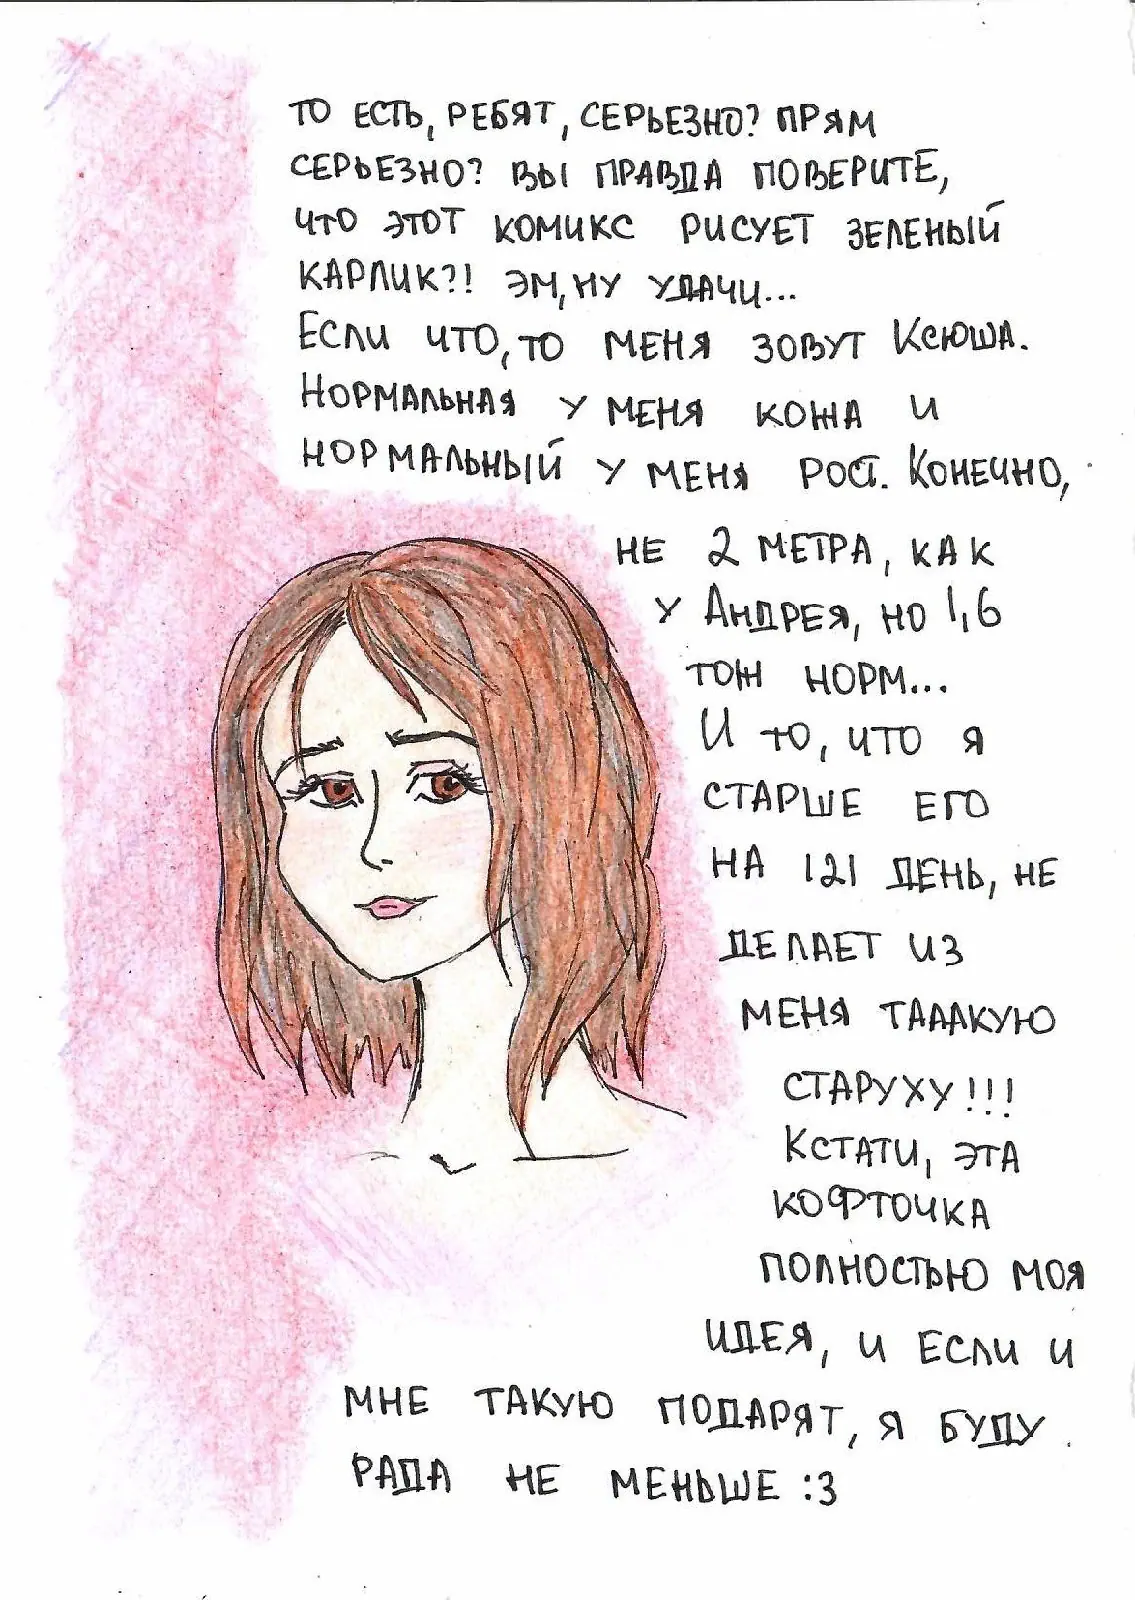 ТО ЕСТЬ, РЕБЯТ, СЕРЬЕЗНО? ПРЯМ
СЕРЬЕЗНО? ВЫ ПРАВДА ПОВЕРИТЕ,
ЧТО ЭТОТ КОМИКС РИСУЕТ ЗЕЛЕНЫЙ
КАРЛИК?! ЭМ, НУ УДАЧИ...
ЕСЛИ ЧТО, ТО МЕНЯ ЗОВУТ КСЮША.
НОРМАЛЬНАЯ У МЕНЯ КОЖА И
НОРМАЛЬНЫЙ У МЕНЯ РОСТ. КОНЕЧНО,
НЕ 2 МЕТРА, КАК
У АНДРЕЯ, НО 1,6
ТОЖ НОРМ...
И ТО, ЧТО Я
СТАРШЕ ЕГО
НА 121 ДЕНЬ, НЕ
ДЕЛАЕТ ИЗ
МЕНЯ ТАААКУЮ
СТАРУХУ!!!
КСТАТИ, ЭТА
КОФТОЧКА
ПОЛНОСТЬЮ МОЯ
ИДЕЯ, И ЕСЛИ И
МНЕ ТАКУЮ ПОДАРЯТ, Я БУДУ
РАДА НЕ МЕНЬШЕ :3